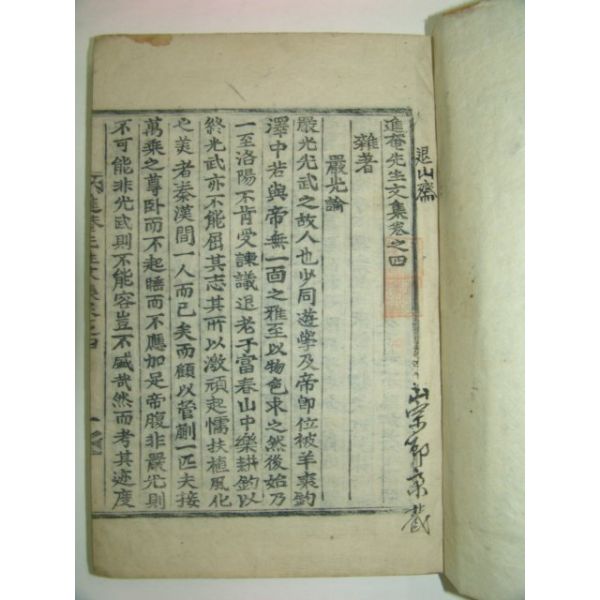 退山齋
進菴先生文集卷之四
雜著
嚴光論
嚴光光武之故人也少同遊學及帝卽位被羊裘釣
澤中若與帝無一面之雅至以物色求之然後始乃
一至洛陽不肯受諫議退老于富春山中樂耕釣以
終光武亦不能屈其志其所以激頑起懦扶植風化
之美者秦漢間一人而已矣而顧以管蒯一匹夫接
萬乘之尊卧而不起睡而不應加足帝腹非嚴光則
不可能非光武則不能容豈不盛哉然而考其迹度
進菴先生文集卷之四
一
藏